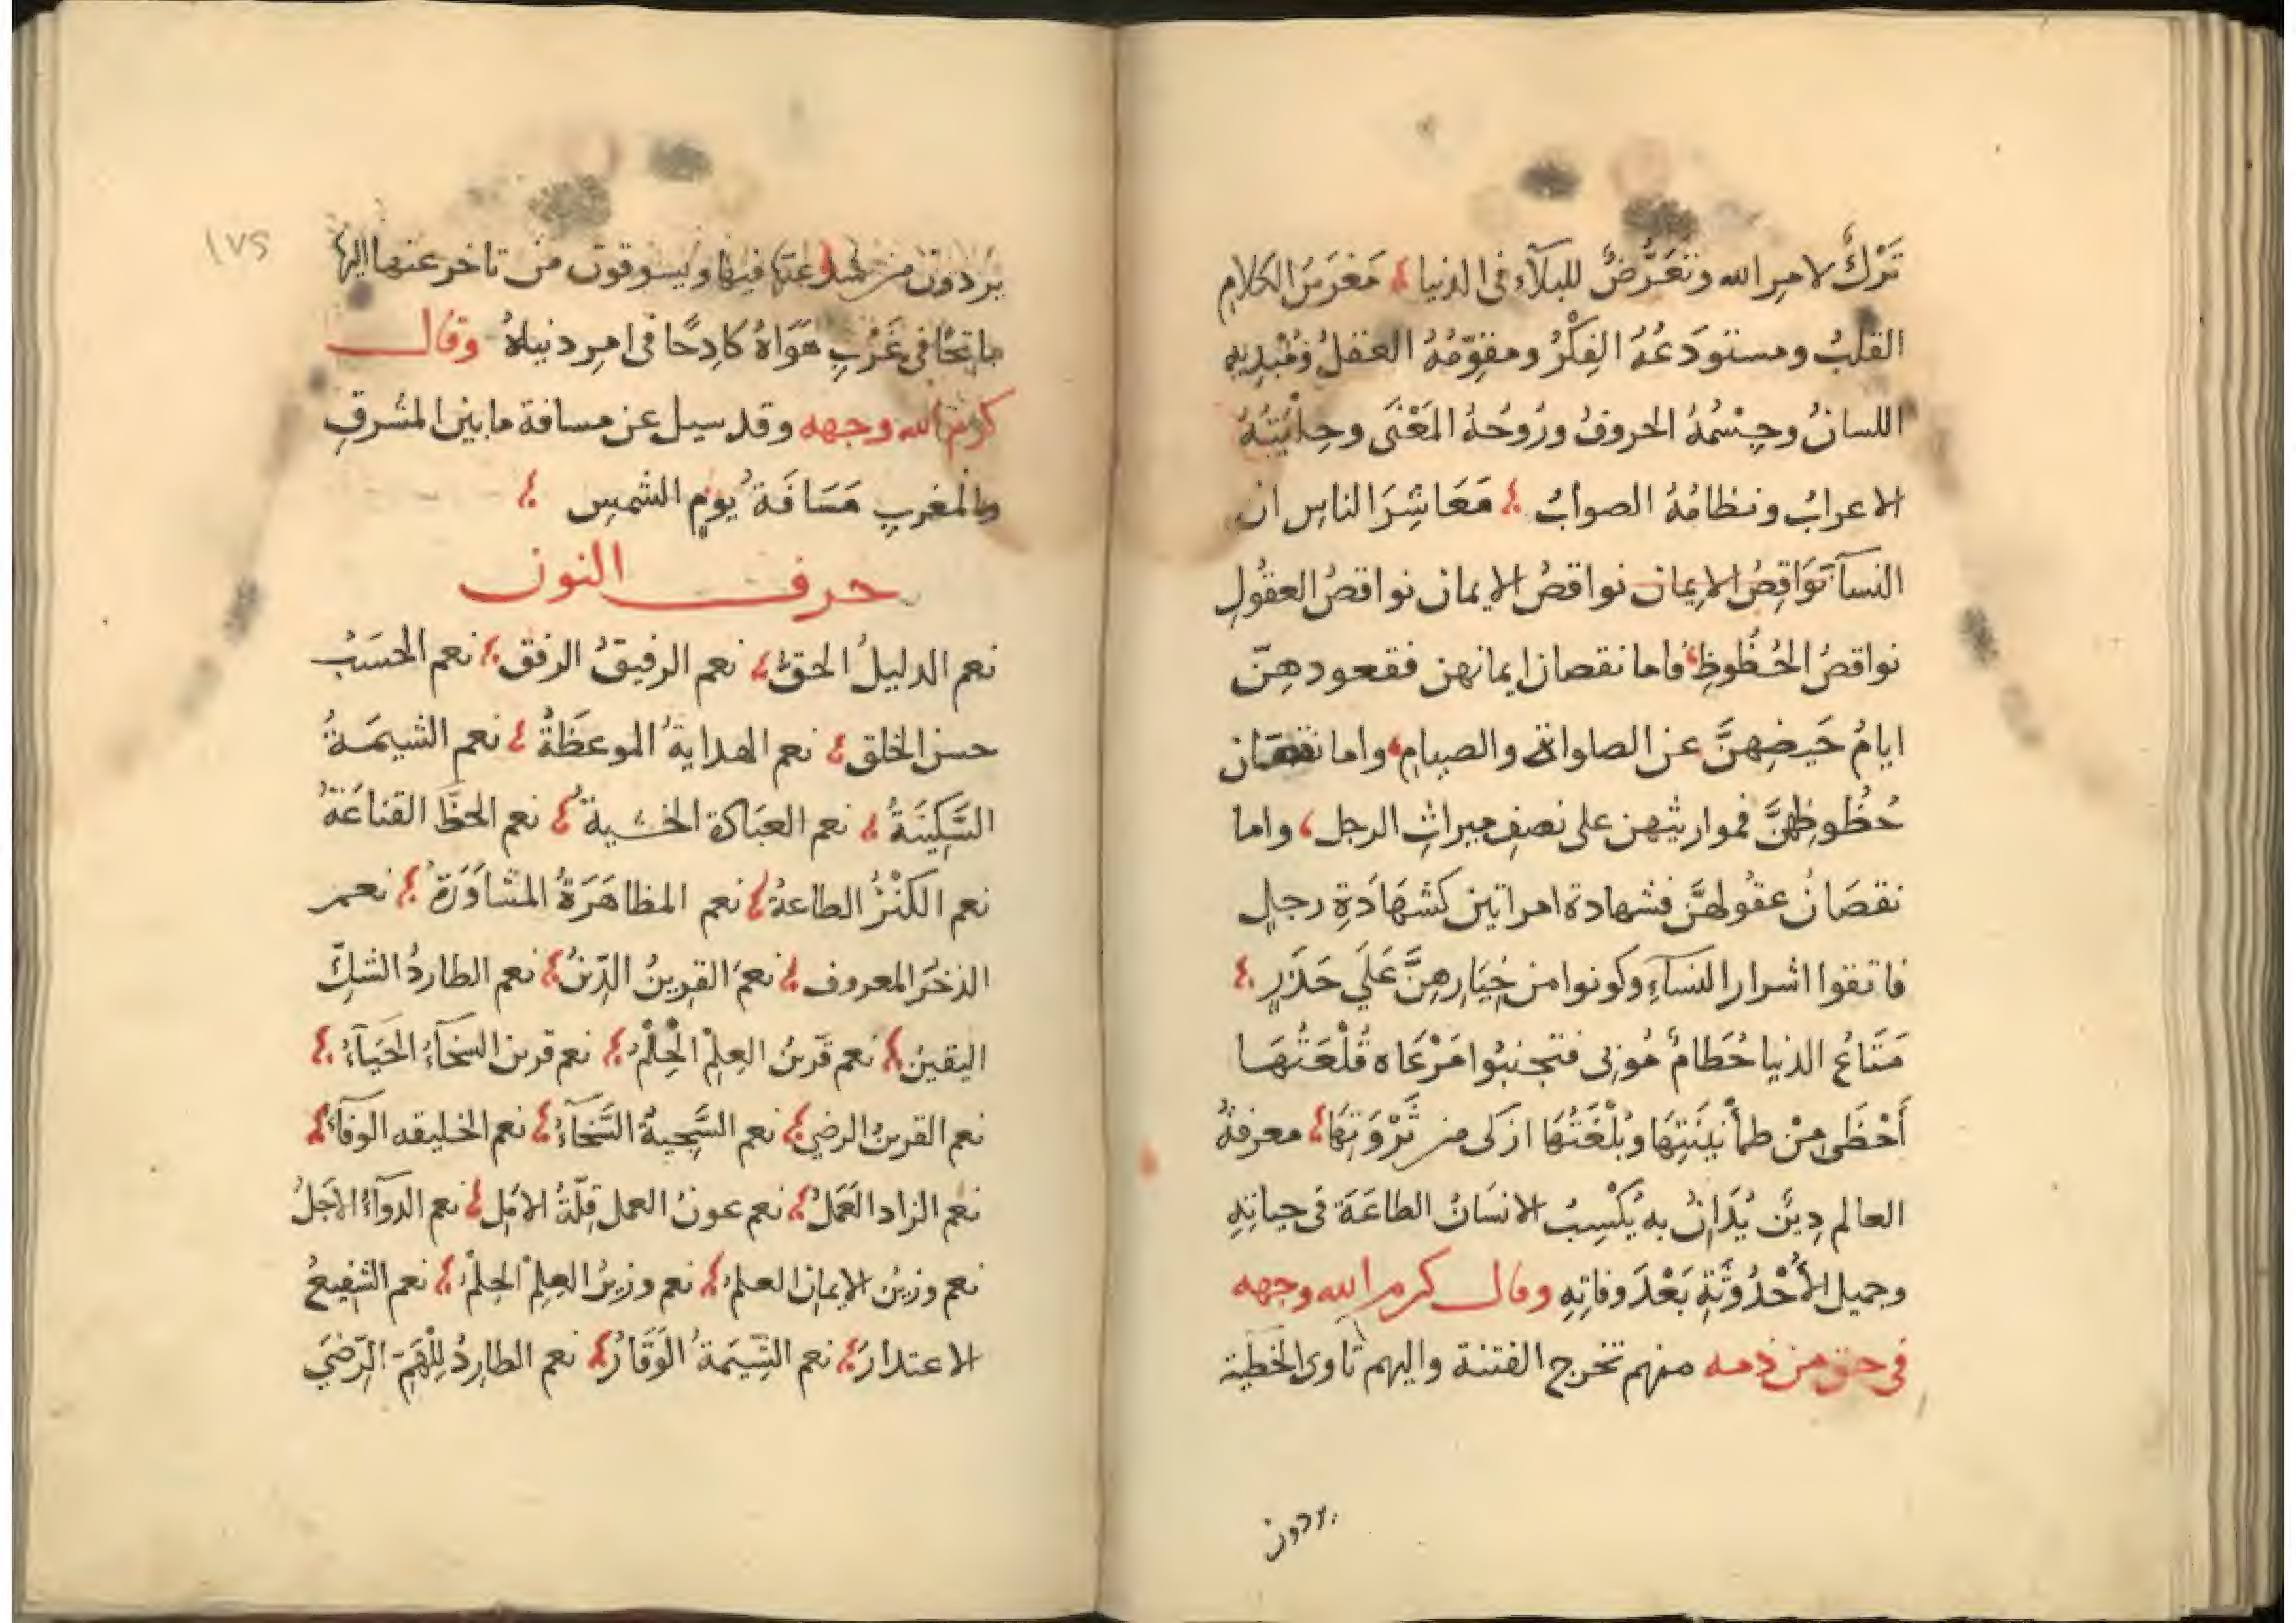 تَرْكٌ لامر الله وتَعَرُّضٌ للبلآء فى الدنيا مَغْرَسُ الكلامِ
القلبُ ومستودَعُهُ الفِكْرُ ومقوِّمُهُ العقلُ ومُبْدِيهِ
اللسانُ وجِسْمُهُ الحروفُ ورُوحُهُ المَعْنَى وحِلْيَتُهُ
الاعرابُ ونظامُهُ الصوابُ مَعَاشِرَ الناسِ ان
النسآء نَوَاقِصُ الايمان نواقصُ الايمان نواقصُ العقُولِ
نواقصُ الحُظُوظِ فاما نقصان ايمانهن فقعودهِنّ
ايامُ حَيضِهنَّ عن الصلواة والصيامِ واما نقصان
حُظُوظِهِنَّ فمواريثهن على نصفِ ميراثِ الرجل واما
نقصَانُ عقُولهنَّ فشهادة امراتين كشهَادَةِ رجلٍ
فاتقوا اشرار النسآءِ وكونوا من خِيَارِهِنَّ عَلَي حَذَرٍ
مَتَاعُ الدنيا حُطَامٌ مُوبى فتجنبُوا مَرْعَاه قُلْعَتُهَا
أَحْظَى مِنْ طمأْنينَتِهَا وبُلْغَتُهَا ازكى من ثَرْوَتِهَا معرفةُ
العالم دِينٌ يُدَانُ به يَكْسِبُ الانسَانُ الطاعَةَ فى حياتِهِ
وجميل الأُحْدُوثَةِ بَعْدَ وفاتِهِ وقال كرم الله وجهه
فى حق من ذمه منهم تخرج الفتنة واليهم تاوى الخطية
يردون
١٧٢
يردون من شذ عنها فيها ويسوقون من تاخر عنها اليها
ماتحًا فى غَرْبِ هَوَاهُ كَادِحًا فى امرِ دنياهُ وقال
كرم الله وجهه وقد سيل عن مسافة مابين المشرقِ
والمغربِ مَسَافَةُ يومٍ الشمسِ
حرف النون
نعم الدليلُ الحقُّ نعم الرفيقُ الرفق نعم الحَسَبُ
حسن الخلق نعم الهدايةُ الموعظَةُ نعم الشيمَةُ
السَّكِينَةُ نعم العبَادة الخشيةُ نعم الحظّ القناعَةُ
نعم الكَنْزُ الطاعةُ نعم المظاهَرَةُ المشَاوَرَةُ نعم
الذخرُ المعروف نعمَ القرينُ الدِّينُ نعم الطاردُ الشكِّ
اليقينُ نعم قَرينُ العِلمِ الحِلْمُ نعم قرين السخآءُ الحَيَآءُ
نعم القرينُ الرضي نعم السَّجِيةُ السَّخَآءُ نعم الخليقه الوفآءُ
نعم الزاد العَمَلُ نعم عونُ العمل قِلّةُ الامَلِ نعم الدوآءُ الاجَلُ
نعم وزيرُ الايمانِ العلمُ نعم وزيرُ العِلمِ الحِلمُ نعم الشفِيعُ
الاعتدارُ نعم الشِّيَمةُ الوَقَارُ نعم الطارِدُ لِلْهَمِّ الرِّضَي